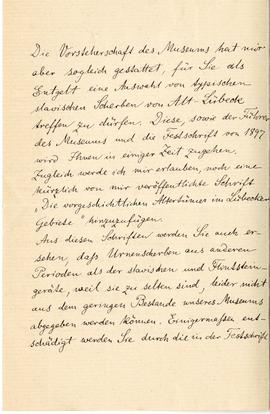 Die Vorsteherschaft des Museums hat mir
aber sogleich gestattet, für Sie als
Entgelt eine Auswahl von typischen
slavischen Scherben von Alt-Lübeck
treffen zu dürfen. Diese, sowie der Führer
des Museums und die Festschrift von 1897
wird Ihnen in einiger Zeit zugehen.
Zugleich werde ich mir erlauben, noch eine
kürzlich von mir veröffentlichte Schrift
„Die vorgeschichtlichen Altertümer im Lübecker
Gebiete" hinzuzufügen.
Aus diesen Schriften werden Sie auch er-
sehen, daß Urnenscherben aus anderen
Perioden als der slavischen und Flintstein-
geräte, weil sie zu selten sind, leider nicht
aus dem geringen Bestande unseres Museums
abgegeben werden können. Einigermaßen ent-
schädigt werden Sie durch die in der Festschrift